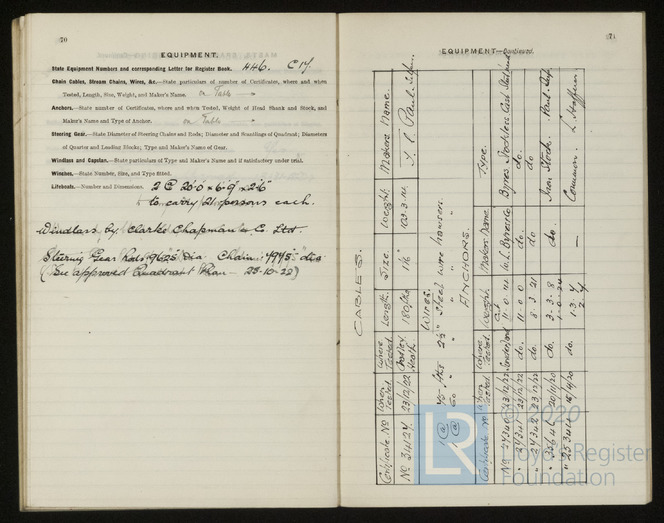 70
EQUIPMENT.
State Equipment Numbers and corresponding Letter for Register Book. 446. C17.
Chain Cables, Stream Chains, Wires, &c.—State particulars of number of Certificates, where and when
Tested, Length, Size, Weight, and Maker's Name. on Table
Anchors.—State number of Certificates, where and when Tested, Weight of Head Shank and Stock, and
Maker's Name and Type of Anchor. on Table
Steering Gear.—State Diameter of Steering Chains and Rods; Diameter and Scantlings of Quadrant; Diameters
of Quarter and Leading Blocks; Type and Maker's Name of Gear.
Windlass and Capstan.—State particulars of Type and Maker's Name and if satisfactory under trial.
Winches.—State Number, Size, and Type fitted.
Lifeboats.—Number and Dimensions. 2 @ 20'0 x 6'9 x 2'6
to carry persons each.
Windlass by Clarke Chapman & Co. Ltd.
Steering Gear Rods dia Chain dia
(See approved Quadrant Plan - 25-10-22)
71
EQUIPMENT—Continued.
CABLES.
Certificate No When Tested Where Tested Length. Size. Weight. Makers Name.
No 31427 23/12/22 Heath
Wires.
45 2¾" Steel wire hawser.
60 " " "
ANCHORS.
Certificate No When Tested Where Tested Weight Makers Name Type.
Cwt
No 27340 Sunderland 11-0- W.L. Byers & Co Byers Stockless Cast Steel
" 27341 23/12/22 do. 11 0 0 do. do.
" 27342 23/12/22 do. 8-3-21 do. do.
20/11/20 do. 3-3-8 do. Iron Stock.
do. — Common.
LR
© 2020
Lloyd's Register
Foundation